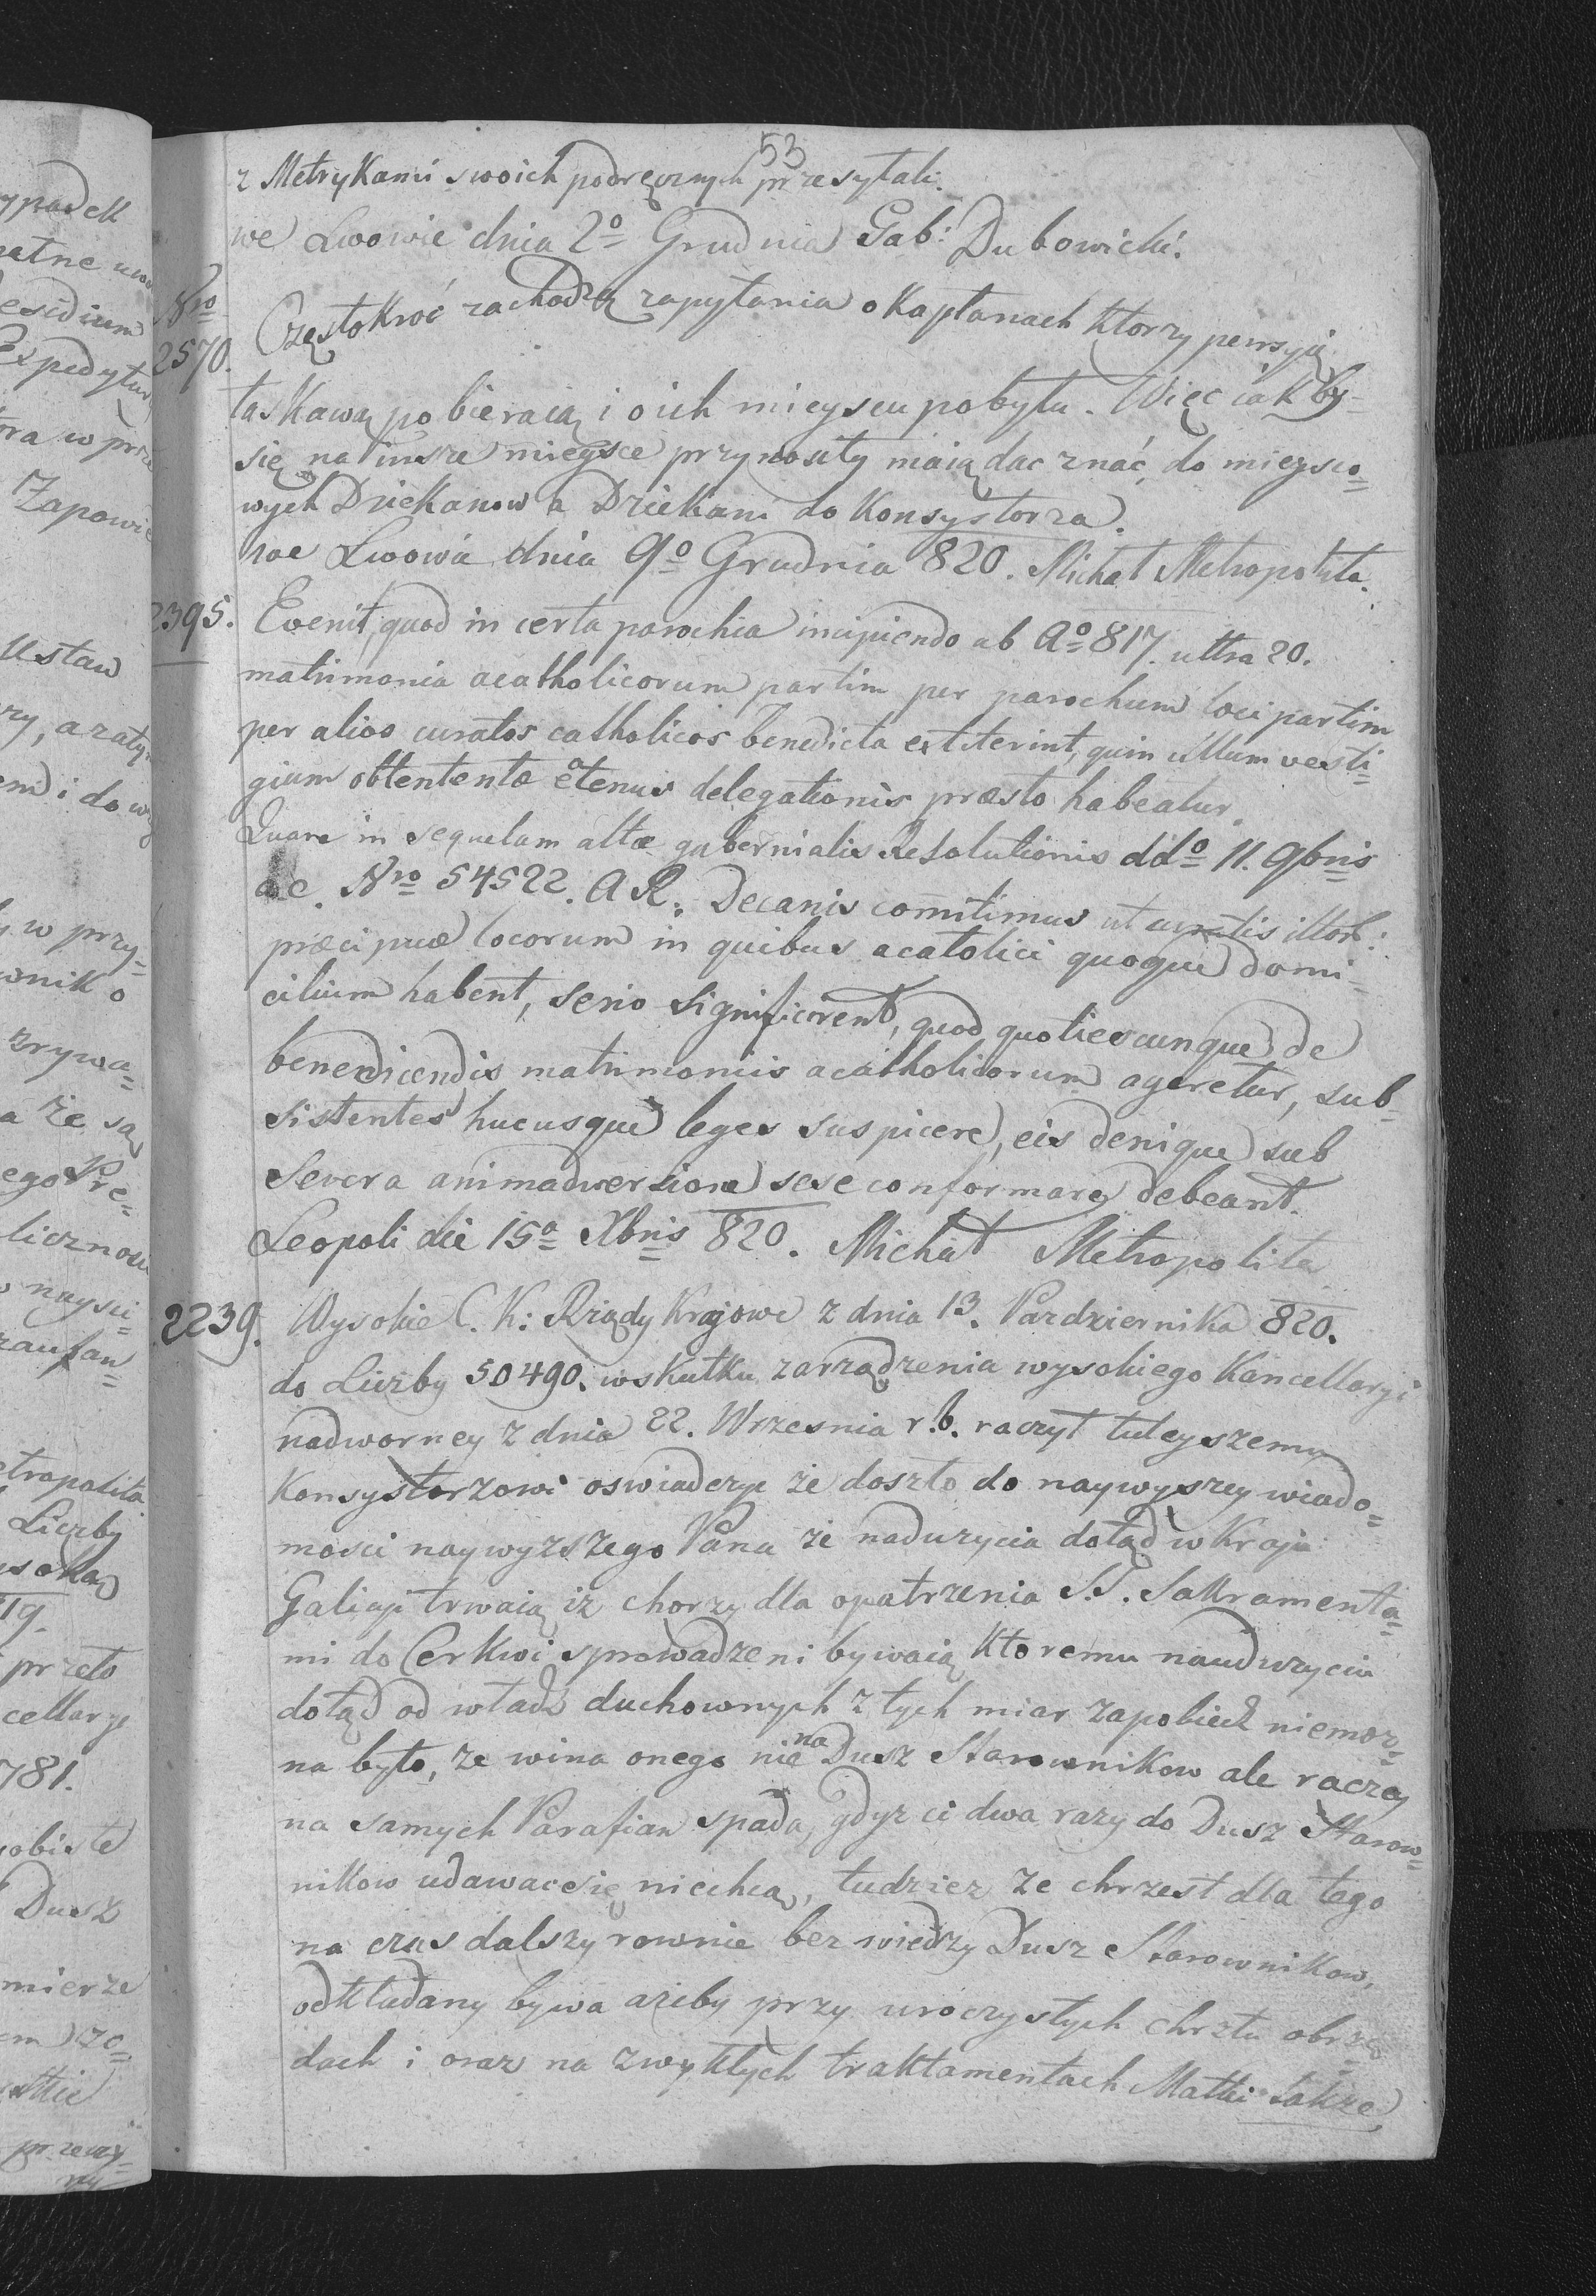 53
z Metrykami swoich podręcznych przesyłali.
we Lwowie dnia 2o Grudnia Gab: Dubowicki.
Nro 2570. Częstokroć zachodzą zapytania o Kapłanach ktorzy pensyją
łaskawą pobieraią i o ich mieyscu pobytu. Więc iak by=
się na insze mieysce przynosiły maią dac znać do mieysco=
wych Dziekanow a Dziekani do Konsystorza.
we Lwowa dnia 9o Grudnia 820. Michał Metropolita.
2395. Evenit, quod in certa parochia incipiendo ab Ao 817. ultra 20.
matrimonia acatholicorum partim per parochum loci partim
per alios curatos catholicos benedicta extiterint, quin ullum vesti=
gium obtententæ etenus delegationis præsto habeatur.
Quare in sequelam altæ gubernialis Resolutionis ddo 11. 9bris
a.c. Nro 54522. A R. Decanis com̃itimus ut curatis illor:
præcipuæ locorum in quibus acatolici quoque domi=
cilium habent, serio significarent, quod quotiescunque de
benedicendis matrimoniis acatholicorum ageretur, sub=
sistentes hucusque leges suspicere, eis denique sub
severa animadversione sese conformare debeant.
Leopoli die 15a Xbris 820. Michał Metropolita
2239. Wysokie C. K: Rządy Krajowe z dnia 13. Pazdziernika 820.
do Liczby 50490. w skutku zarządzenia wysokiego Kancellaryi
nadworney z dnia 22. Wrzesnia r.b. raczył tuteyszemu
Konsystorzowi oswiadczyc że doszło do naywyszey wiado=
mosci naywyższego Pana że nadużycia dotąd w Kraju
Galicyi trwaią iż chorzy dla opatrzenia S.S. Sakramenta=
mi do Cerkwi sprowadzeni bywaią ktoremu naudużyciu
dotąd od władz duchownych z tych miar zapobiedz niemoz=
na było, że wina onego nie na Dusz Starownikow ale raczey
na samych Parafian spada, gdyz ci dwa razy do Dusz Starow=
nikow udawac się niechcą, tudzież że chrzest dla tego
na czas dalszy rownie bez wiedzy Dusz Starownikow,
odkładany bywa ażeby przy uroczystych chrztu obrzę=
dach i oraz na zwykłych traktamentach Matki także